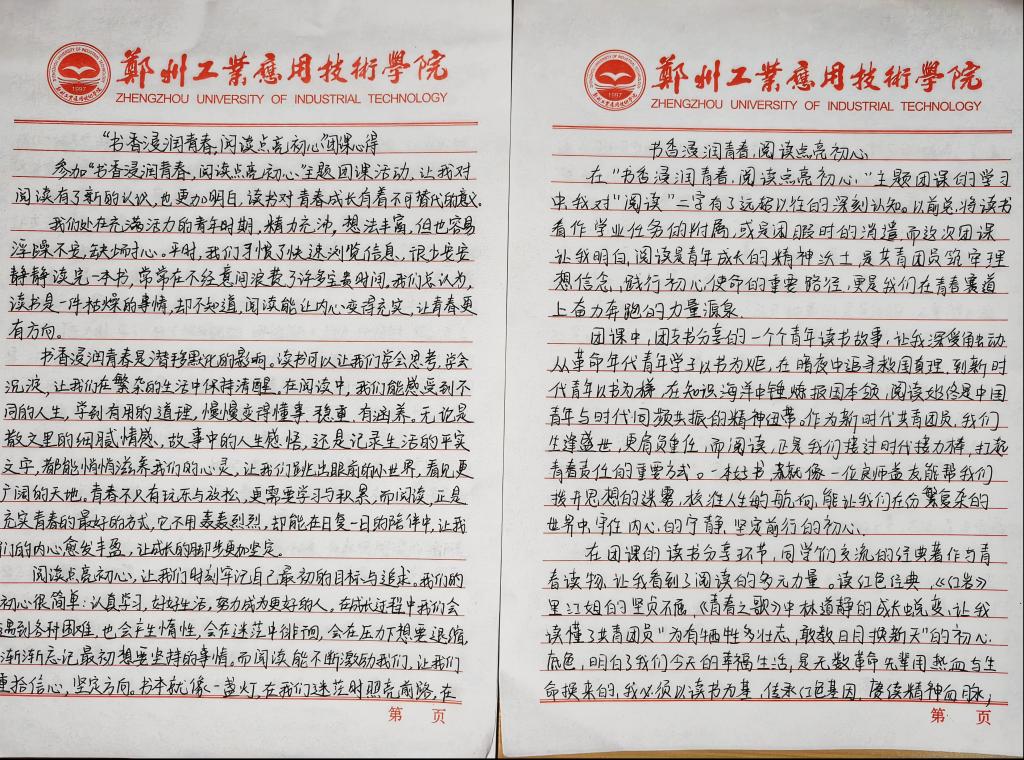 鄭州工業應用技術學院
ZHENGZHOU UNIVERSITY OF INDUSTRIAL TECHNOLOGY
“书香浸润青春,阅读点亮初心”团课心得
参加“书香浸润青春,阅读点亮初心”主题团课活动,让我对
阅读有了新的认识,也更加明白,读书对青春成长有着不可替代的意义。
我们处在充满活力的青年时期,精力充沛,想法丰富,但也容易
浮躁不定,缺少耐心。平时,我们习惯了快速浏览信息,很少安安
静静读完一本书,常常在不经意间浪费了许多宝贵时间。我们总认为,
读书是一件枯燥的事情,却不知道,阅读能让内心变得充实,让青春更
有方向。
书香浸润青春是潜移默化的影响。读书可以让我们学会思考,学会
沉淀,让我们在繁杂的生活中保持清醒,在阅读中,我们能感受到不
同的人生,学到有用的道理,慢慢变得懂事、稳重、有涵养。无论是
散文里的细腻情感,故事中的人生感悟,还是记录生活的平实
文字,都能悄悄滋养我们的心灵,让我们跳出眼前的小世界,看见更
广阔的天地。青春不只有玩乐与放松,更需要学习与积累,而阅读,正是
充实青春的最好的方式,它不用轰轰烈烈,却能在日复一日的陪伴中,让我
们的内心愈发丰盈,让成长的脚步更加坚定。
阅读点亮初心,让我们时刻牢记自己最初的目标与追求。我们的
初心很简单:认真学习,好好生活,努力成为更好的人,在成长过程中我们会
遇到各种困难,也会产生惰性,会在迷茫中徘徊,会在压力下想要退缩,
渐渐忘记最初想要坚持的事情。而阅读能不断激励我们,让我们
重拾信心,坚定方向。书本就像一盏灯,在我们迷茫时照亮前路,在
第 页
鄭州工業應用技術學院
ZHENGZHOU UNIVERSITY OF INDUSTRIAL TECHNOLOGY
书香浸润青春,阅读点亮初心
在“书香浸润青春,阅读点亮初心,”主题团课的学习
中,我对“阅读”二字有了远超以往的深刻认知。以前总将读书
看作学业任务的附属,或是闲暇时的消遣,而这次团课
让我明白,阅读是青年成长的精神沃土,是共青团员筑牢理
想信念,践行初心使命的重要路径,更是我们在青春赛道
上奋力奔跑的力量源泉.
团课中,团支书分享的一个个青年读书故事,让我深受触动
从革命年代青年学子以书为炬,在暗夜中追寻救国真理,到新时
代青年以书为梯,在知识海洋中锤炼报国本领,阅读始终是中国
青年与时代同频共振的精神纽带。作为新时代共青团员,我们
生逢盛世,更肩负重任,而阅读,正是我们接过时代接力棒,扛起
青春责任的重要方式。一本好书,就像一位良师益友能帮我们
拨开思想的迷雾,校准人生的航向,能让我们在纷繁复杂的
世界中,守住内心的宁静,坚定前行的初心.
在团课的读书分享环节,同学们交流的经典著作与青
春读物,让我看到了阅读的多元力量。读红色经典,《红岩》
里江姐的坚贞不屈,《青春之歌》中林道静的成长蜕变,让我
读懂了共青团员“为有牺牲多壮志,敢教日月换新天”的初心
底色,明白了我们今天的幸福生活,是无数革命先辈用热血与生
命换来的,我必须以读书为基,传承红色基因,赓续精神血脉,
第 页